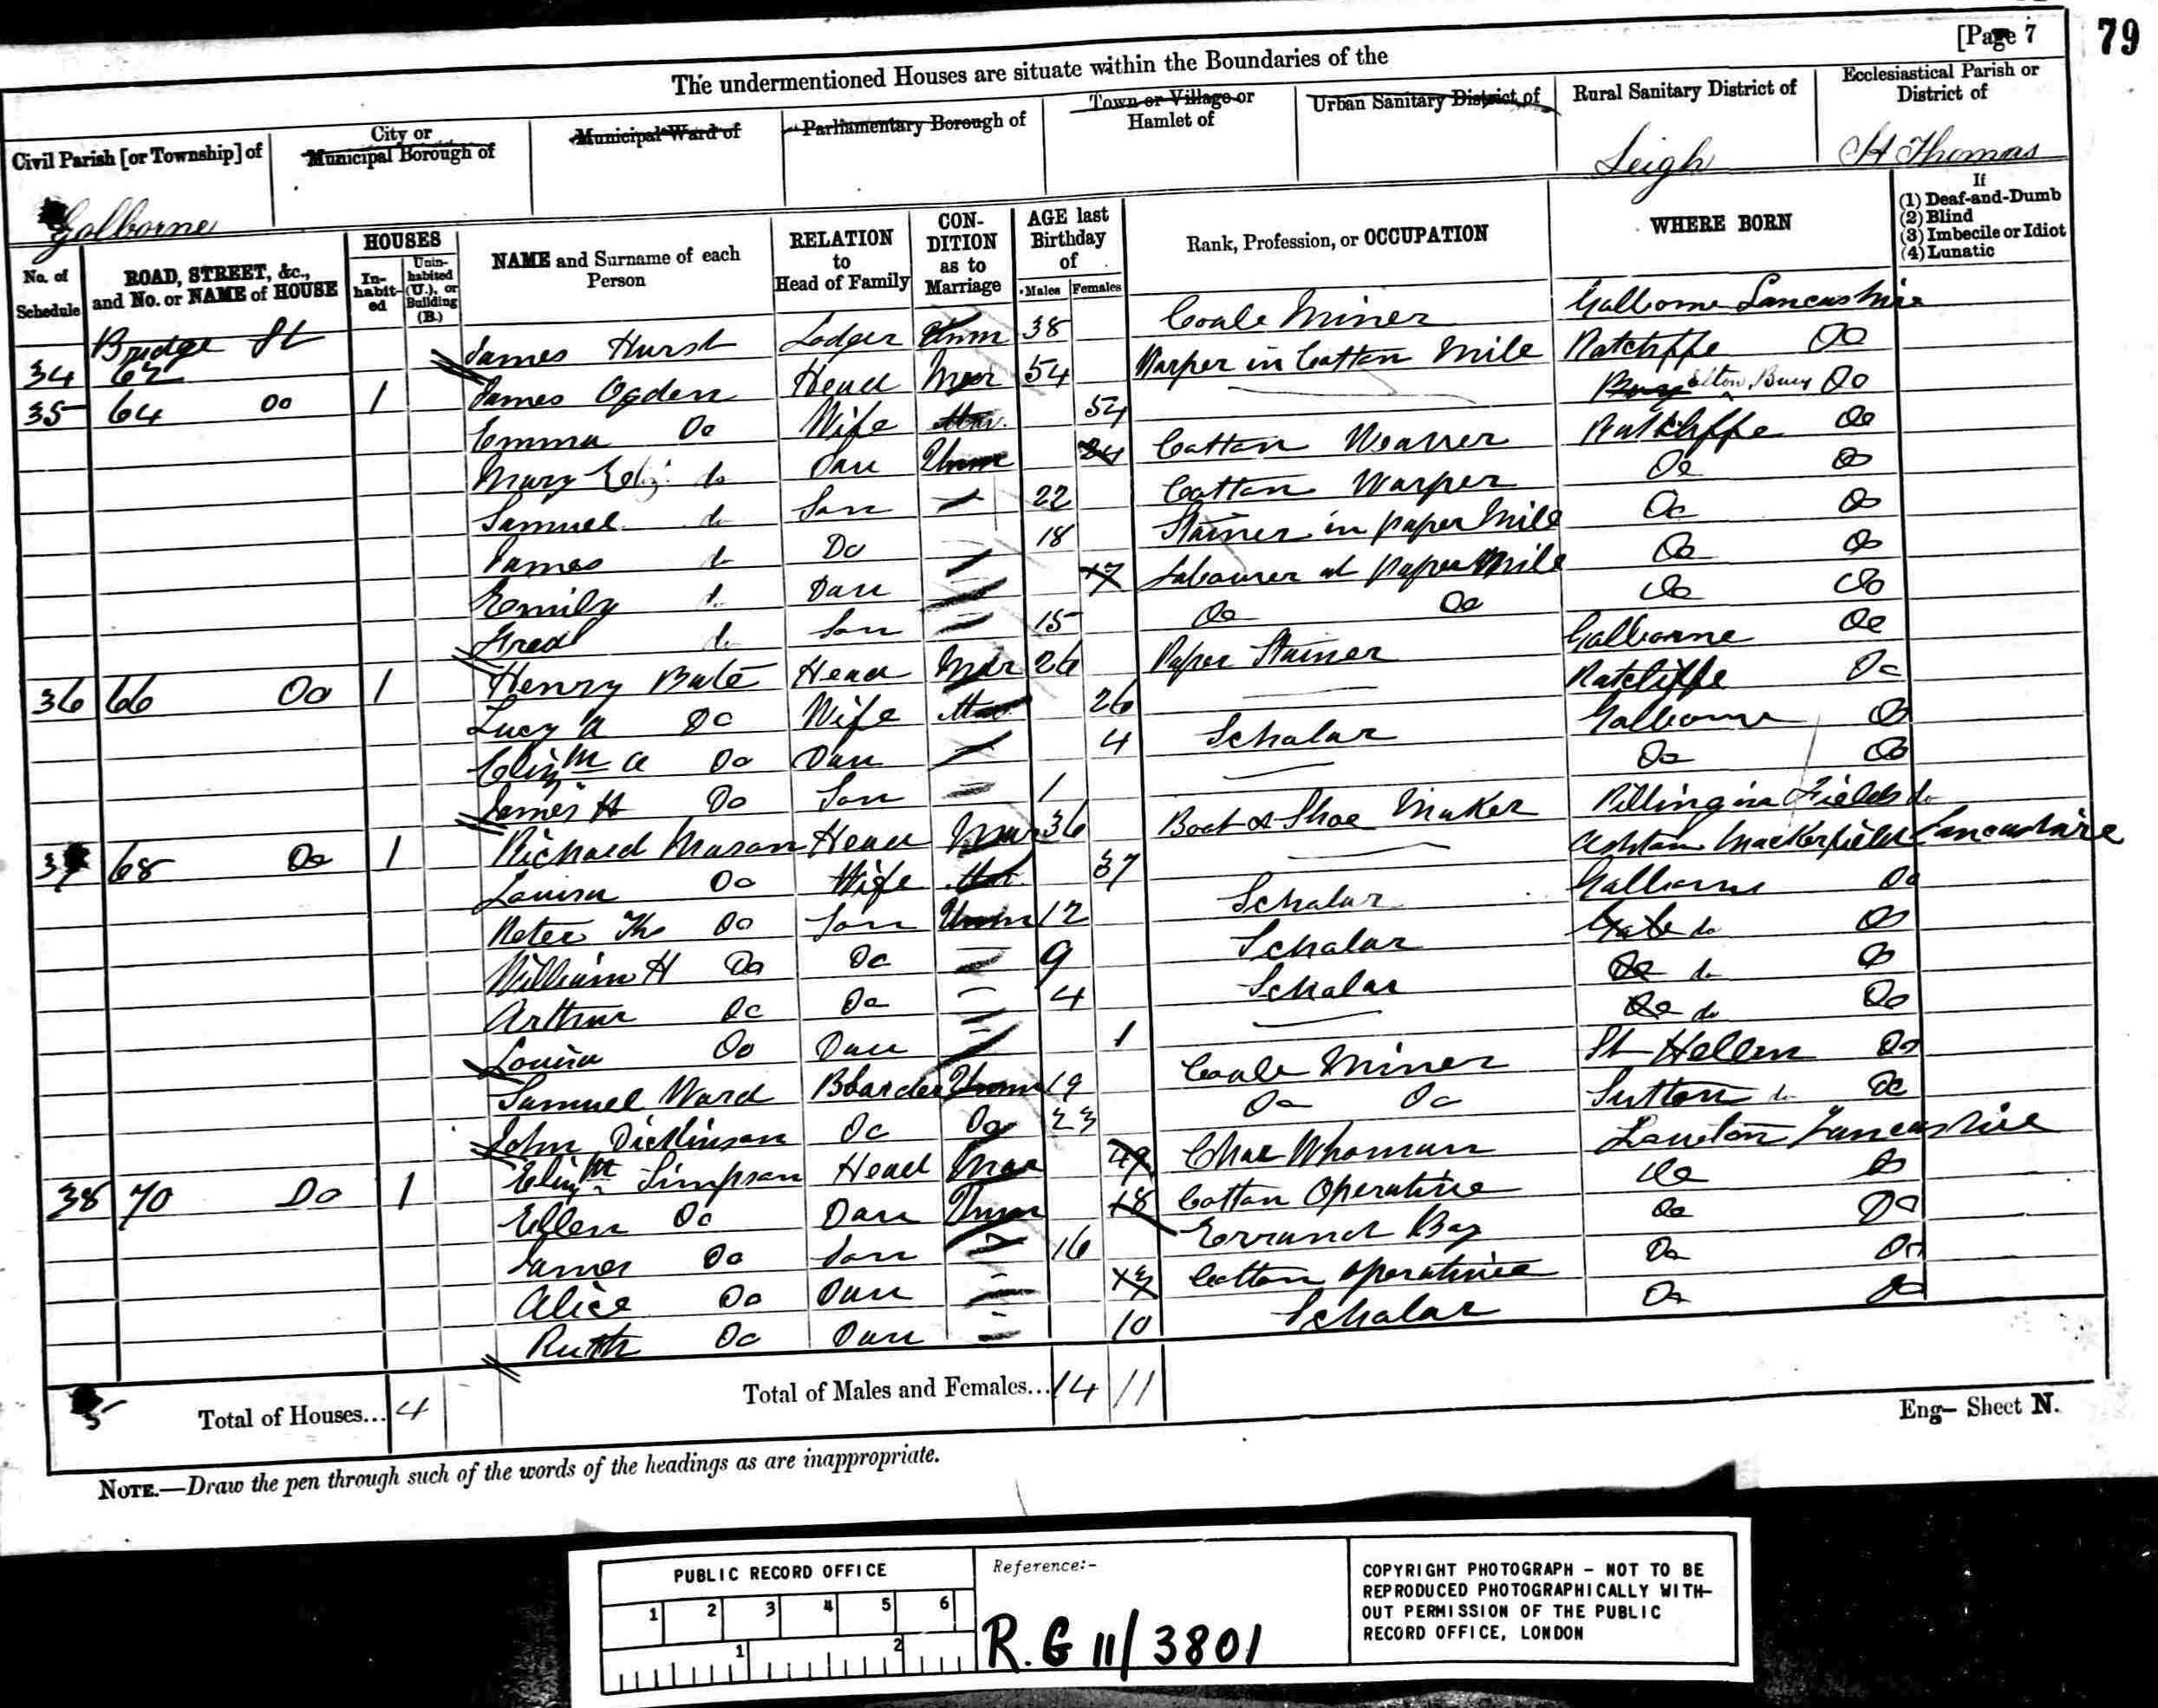 [Page 7
79
The undermentioned Houses are situate within the Boundaries of the
Civil Parish [or Township] of
City or Municipal Borough of
Municipal Ward of
Parliamentary Borough of
Town or Village or Hamlet of
Urban Sanitary District of
Rural Sanitary District of
Ecclesiastical Parish or District of
Golborne
Leigh
St Thomas
No. of Schedule
ROAD, STREET, &c., and No. or NAME of HOUSE
HOUSES
In-habit-ed
Unin-habited (U.), or Building (B.)
NAME and Surname of each Person
RELATION to Head of Family
CON-DITION as to Marriage
AGE last Birthday of
Males
Females
Rank, Profession, or OCCUPATION
WHERE BORN
If (1) Deaf-and-Dumb (2) Blind (3) Imbecile or Idiot (4) Lunatic
34 Bridge St 62 James Hurst Lodger Unm 38 Coale Miner Golborne Lancashire
35 64 Do 1 James Ogden Head Mar 54 Warper in Cotton Mile Ratcliffe Do
Emma Do Wife Mar 54 Elton Bury Do
Mary Eliz. do Dau Unm 24 Cotton Weaver Ratcliffe Do
Samuel do Son 22 Cotton Warper Do Do
James do Do 18 Stainer in paper Mile Do Do
Emily do Dau 17 Labourer at paper Mile Do Do
Fred do Son 15 Do Do Do Do
36 66 Do 1 Henry Bate Head Mar 26 Paper Stainer Golborne Do
Lucy A Do Wife Mar 26 Ratcliffe Do
Elizth A Do Dau 4 Scholar Golborne Do
James H Do Son 1 Do Do
37 68 Do 1 Richard Mason Head Mar 36 Boot & Shoe Maker Fields do
Louisa Do Wife Mar 37 Ashton Mackerfield Lancashire
Peter Ths Do Son Unm 12 Scholar Golborne Do
William H Do Do 9 Scholar do Do
Arthur Do Do 4 Scholar Do do Do
Louisa Do Dau 1 Do do Do
Samuel Ward Boarder Unm 19 Coale Miner St Hellen Do
John Dickinson Do Do 23 Do Do Sutton do Do
38 70 Do 1 Elizth Simpson Head Mar 49 Char Whoman Lowton Lancashire
Ellen Do Dau Unm 18 Cotton Operative Do Do
James Do Son 16 Errand Boy Do Do
Alice Do Dau 13 Cotton Operative Do Do
Ruth Do Dau 10 Scholar Do Do
5 Total of Houses... 4
Total of Males and Females... 14 11
Eng— Sheet N.
NOTE.—Draw the pen through such of the words of the headings as are inappropriate.
PUBLIC RECORD OFFICE
1 2 3 4 5 6
1 2
Reference:-
R.G 11/3801
COPYRIGHT PHOTOGRAPH – NOT TO BE
REPRODUCED PHOTOGRAPHICALLY WITH–
OUT PERMISSION OF THE PUBLIC
RECORD OFFICE, LONDON